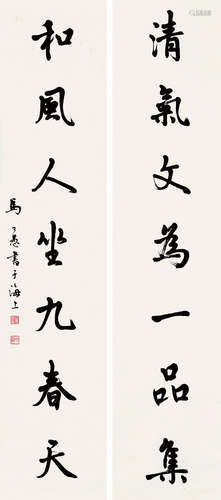 清氣文為一品集
和風人坐九春天
馬公愚書于海上